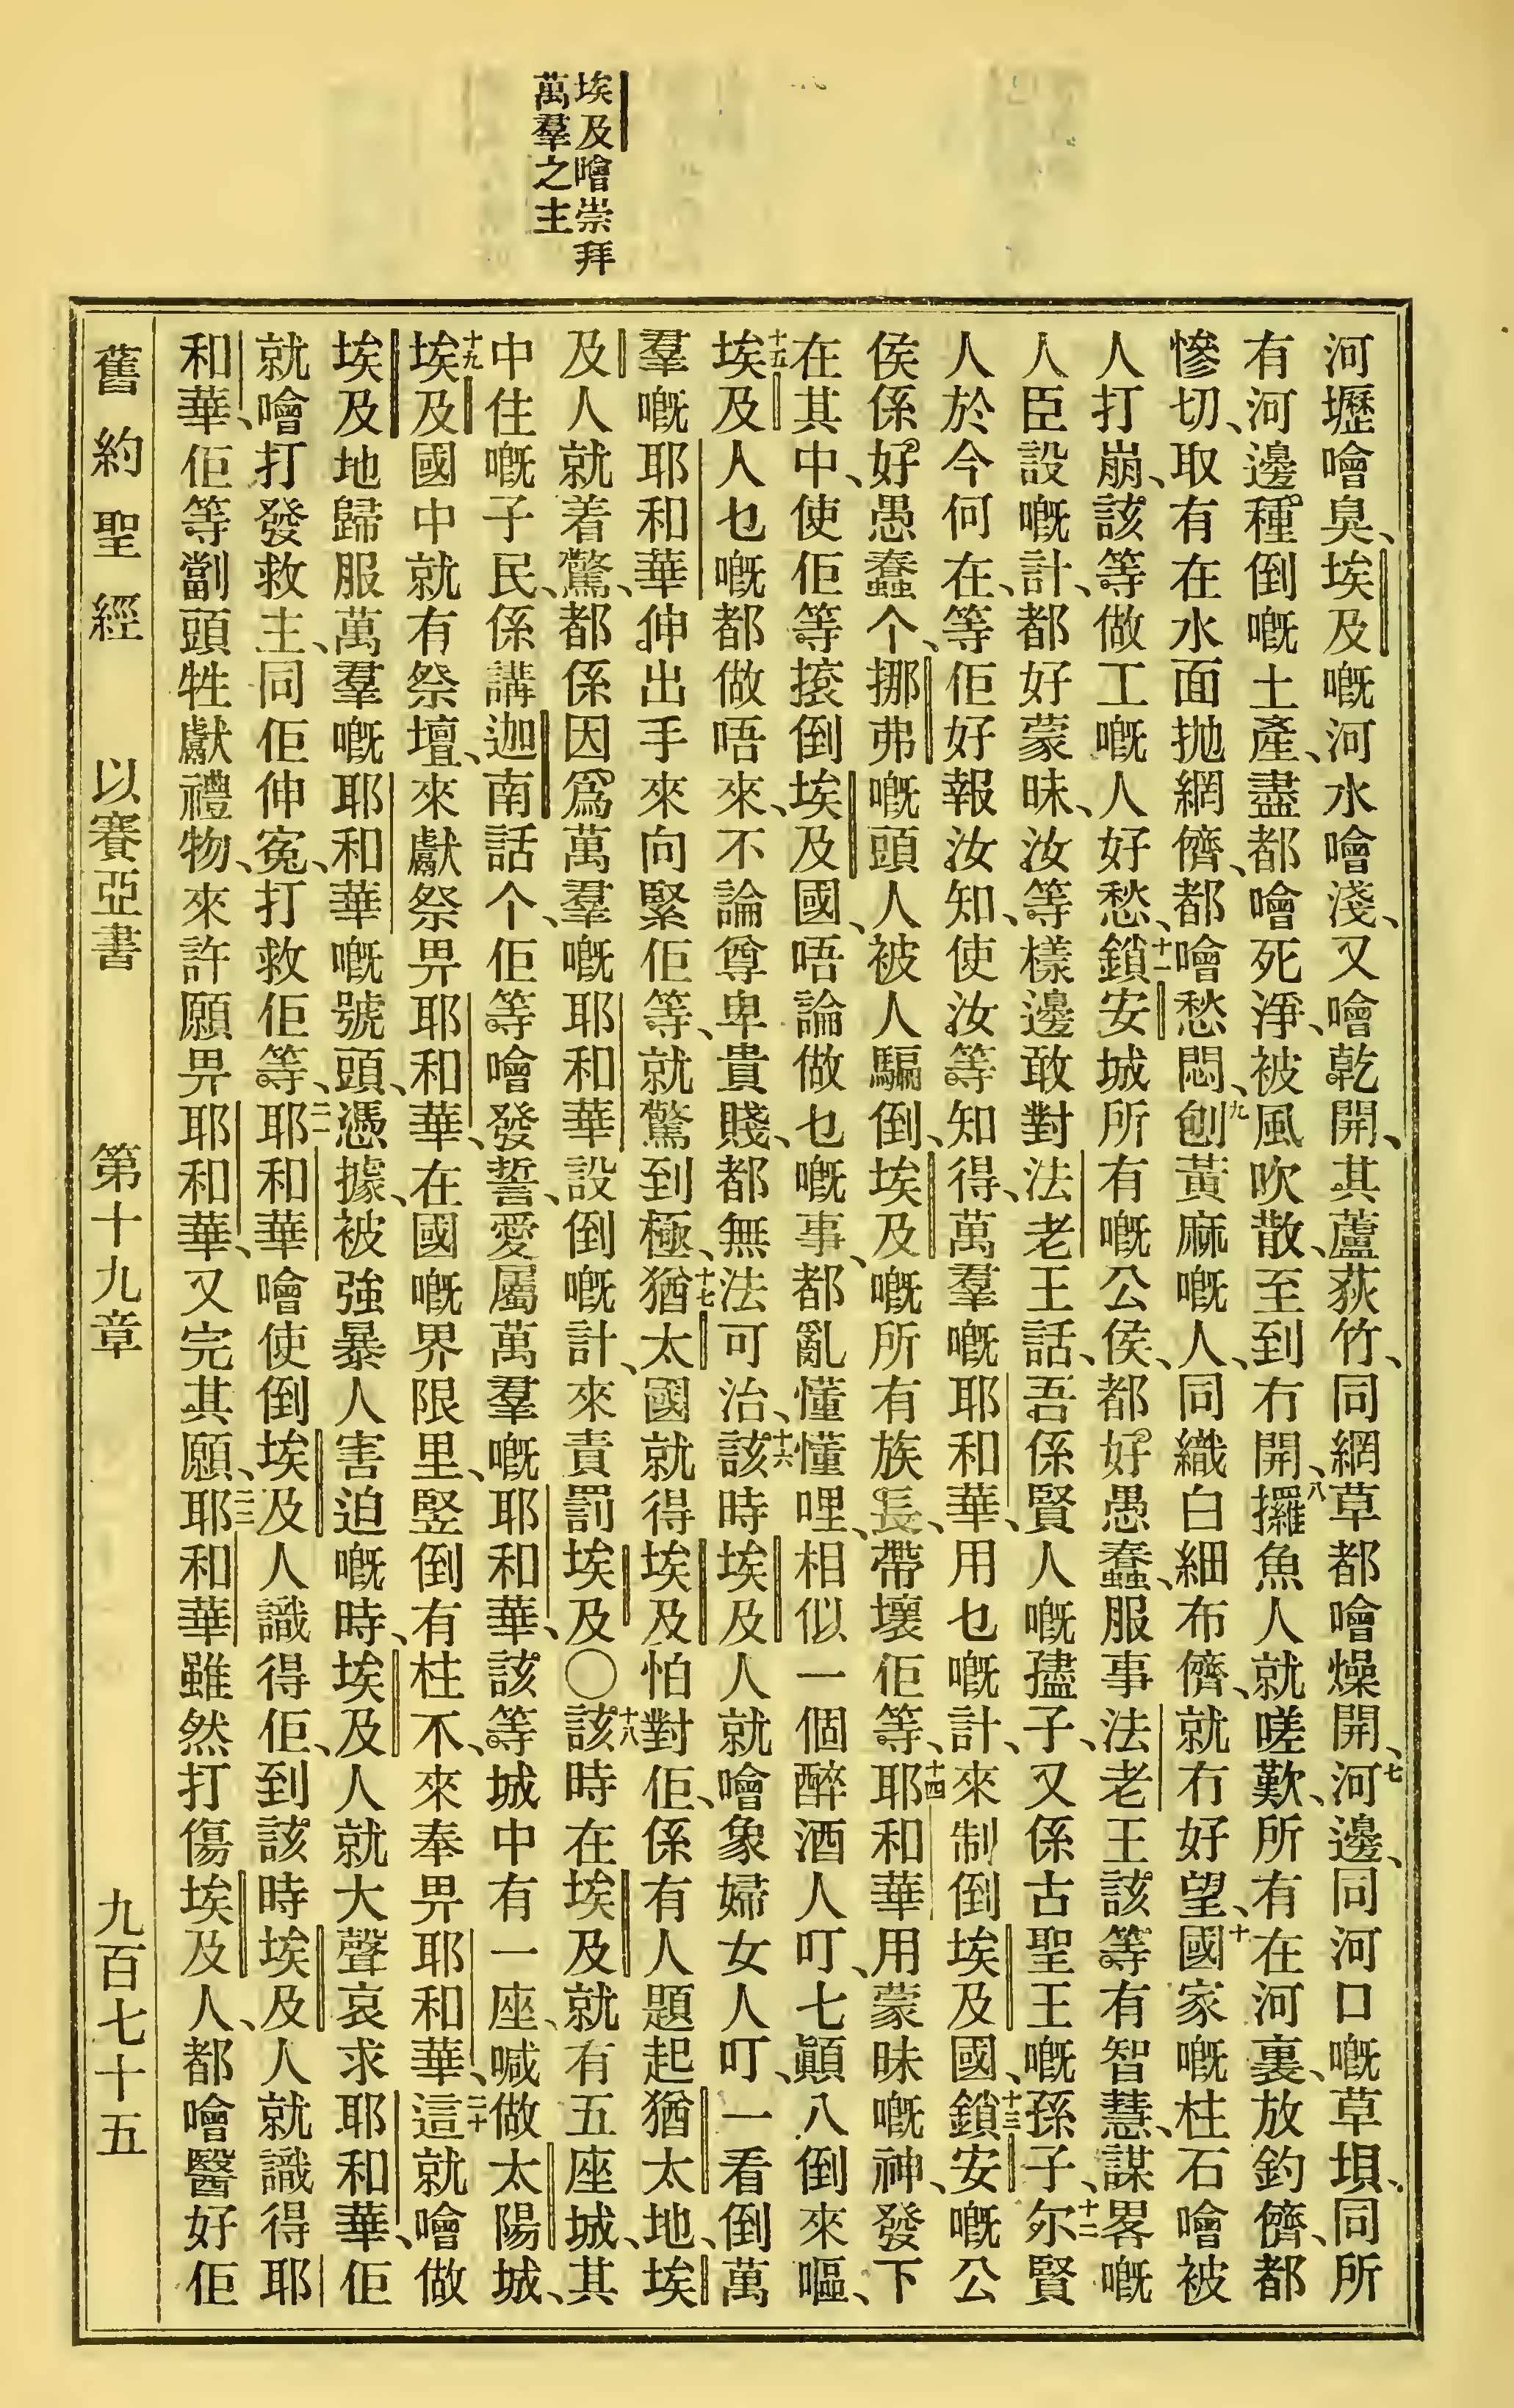 埃及噲崇拜
萬羣之主
河壢噲臭、埃及嘅河水噲淺、又噲乾開、其蘆荻竹、同網草都噲燥開、七河邊、同河口嘅草垻、同所
有河邊種倒嘅土產、盡都噲死淨、被風吹散、至到冇開、八攞魚人就嗟歎、所有在河裏、放釣儕、都
慘切、取有在水面抛網儕、都噲愁悶、九刨黃麻嘅人、同織白細布儕、就冇好望、十國家嘅柱石噲被
人打崩、該等做工嘅人好愁、十一鎖安城所有嘅公侯、都好愚蠢、服事法老王該等有智慧、謀畧嘅
人臣設嘅計、都好蒙昧、汝等樣邊敢對法老王話、吾係賢人嘅孻子、又係古聖王嘅孫子、十二尔賢
人於今何在、等佢好報汝知、使汝等知得、萬羣嘅耶和華、用乜嘅計、來制倒埃及國、十三鎖安嘅公
侯係好愚蠢个、挪弗嘅頭人被人騙倒、埃及嘅所有族長、帶壞佢等、十四耶和華用蒙昧嘅神、發下
在其中、使佢等㨰倒埃及國、唔論做乜嘅事、都亂懂懂哩、相似一個醉酒人叮、七顚八倒來嘔、
十五埃及人乜嘅都做唔來、不論尊卑貴賤、都無法可治、十六該時埃及人就噲象婦女人叮、一看倒萬
羣嘅耶和華伸出手來向緊佢等、就驚到極、十七猶太國就得埃及怕對佢、係有人題起猶太地、埃
及人就着驚、都係因爲萬羣嘅耶和華設倒嘅計、來責罰埃及〇十八該時在埃及就有五座城、其
中住嘅子民、係講迦南話个、佢等噲發誓、愛屬萬羣嘅耶和華、該等城中有一座、喊做太陽城、
十九埃及國中就有祭壇、來獻祭畀耶和華、在國嘅界限里、竪倒有柱不、來奉畀耶和華、二十這就噲做
埃及地歸服萬羣嘅耶和華嘅號頭、憑據、被強暴人害迫嘅時、埃及人就大聲哀求耶和華、佢
就噲打發救主、同佢伸寃、打救佢等、二一耶和華噲使倒埃及人識得佢、到該時埃及人就識得耶
和華、佢等劏頭牲獻禮物、來許願畀耶和華、又完其願、二二耶和華雖然打傷埃及人、都噲醫好佢
舊約聖經　以賽亞書　第十九章　九百七十五